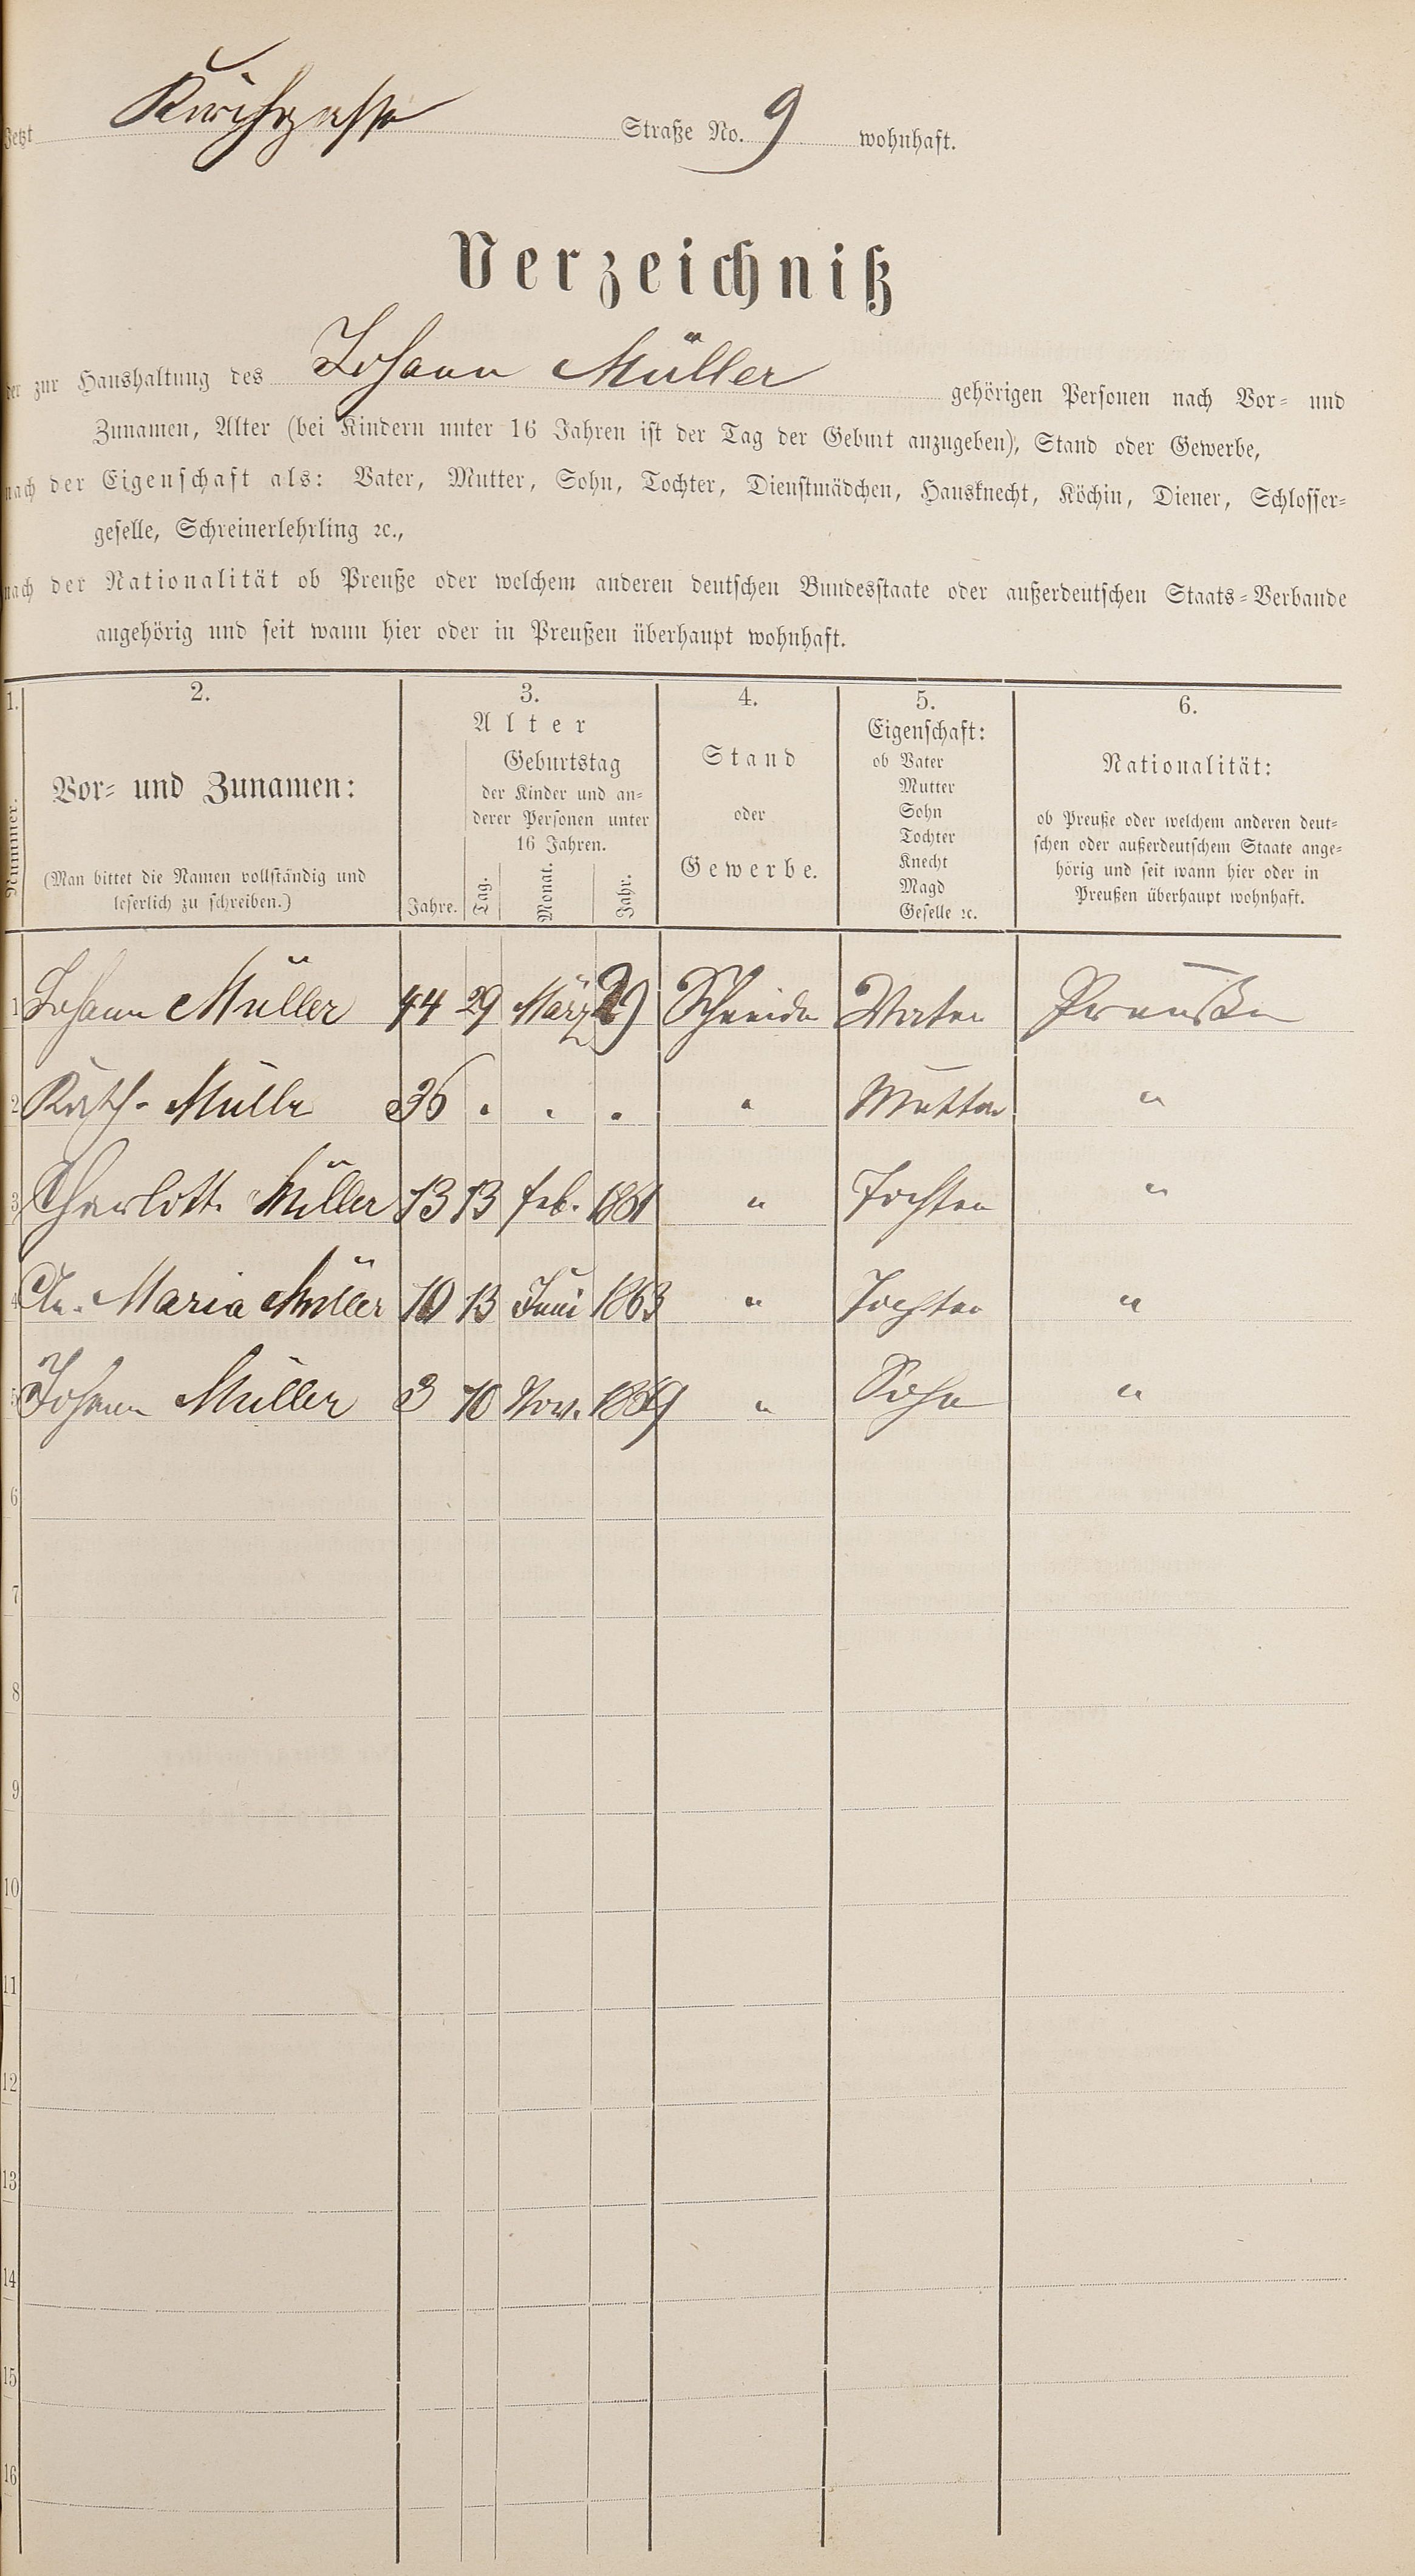 Jetzt Kirchgasse Straße No. 9 wohnhaft.
Verzeichniß
der zur Haushaltung des Johann Müller gehörigen Personen nach Vor- und
Zunamen, Alter (bei Kindern unter 16 Jahren ist der Tag der Geburt anzugeben), Stand oder Gewerbe,
nach der Eigenschaft als: Vater, Mutter, Sohn, Tochter, Dienstmädchen, Hausknecht, Köchin, Diener, Schlosser-
geselle, Schreinerlehrling ꝛc.,
nach der Nationalität ob Preuße oder welchem anderen deutschen Bundesstaate oder außerdeutschen Staats-Verbande
angehörig und seit wann hier oder in Preußen überhaupt wohnhaft.
1.
Nummer.
2.
Vor- und Zunamen:
(Man bittet die Namen vollständig und
leserlich zu schreiben.)
3.
Alter
Jahre.
Geburtstag
der Kinder und an-
derer Personen unter
16 Jahren.
Tag. Monat. Jahr.
4.
Stand
oder
Gewerbe.
5.
Eigenschaft:
ob Vater
Mutter
Sohn
Tochter
Knecht
Magd
Geselle ꝛc.
6.
Nationalität:
ob Preuße oder welchem anderen deut-
schen oder außerdeutschem Staate ange-
hörig und seit wann hier oder in
Preußen überhaupt wohnhaft.
1 Johann Müller 44 29 März 29 Schneider Vater Preuße
2 Kath. Müller 36 . . . " Mutter "
3 Charlotte Müller 13 13 Feb. 1861 " Tochter "
4 An. Maria Müller 10 13 Juni 1863 " Tochter "
5 Johann Müller 3 10 Nov. 1869 " Sohn "
6
7
8
9
10
11
12
13
14
15
16